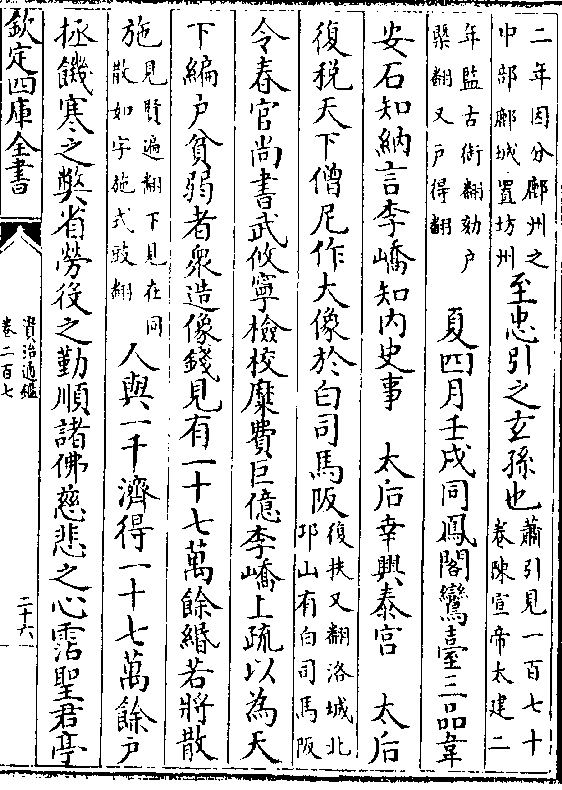 二年因分鄜州之
中部鄜城置坊州
至忠引之玄孫也
蕭引見一百七十
卷陳宣帝太建二
年監古銜翻劾户
槩翻又户得翻
夏四月壬戌同鳳閣鸞臺三品韋
安石知納言李嶠知内史事　太后幸興泰宫　太后
復税天下僧尼作大像於白司馬阪
復扶又翻洛城北
邙山有白司馬阪
令春官尚書武攸寧檢校糜費巨億李嶠上疏以為天
下編户貧弱者衆造像錢見有一十七萬餘緡若將散
施
見賢遍翻下見在同
散如字施式豉翻
人與一千濟得一十七萬餘户
拯饑寒之弊省勞役之勤順諸佛慈悲之心霑聖君亭
欽定四庫全書
資治通鑑
卷二百七
二十六